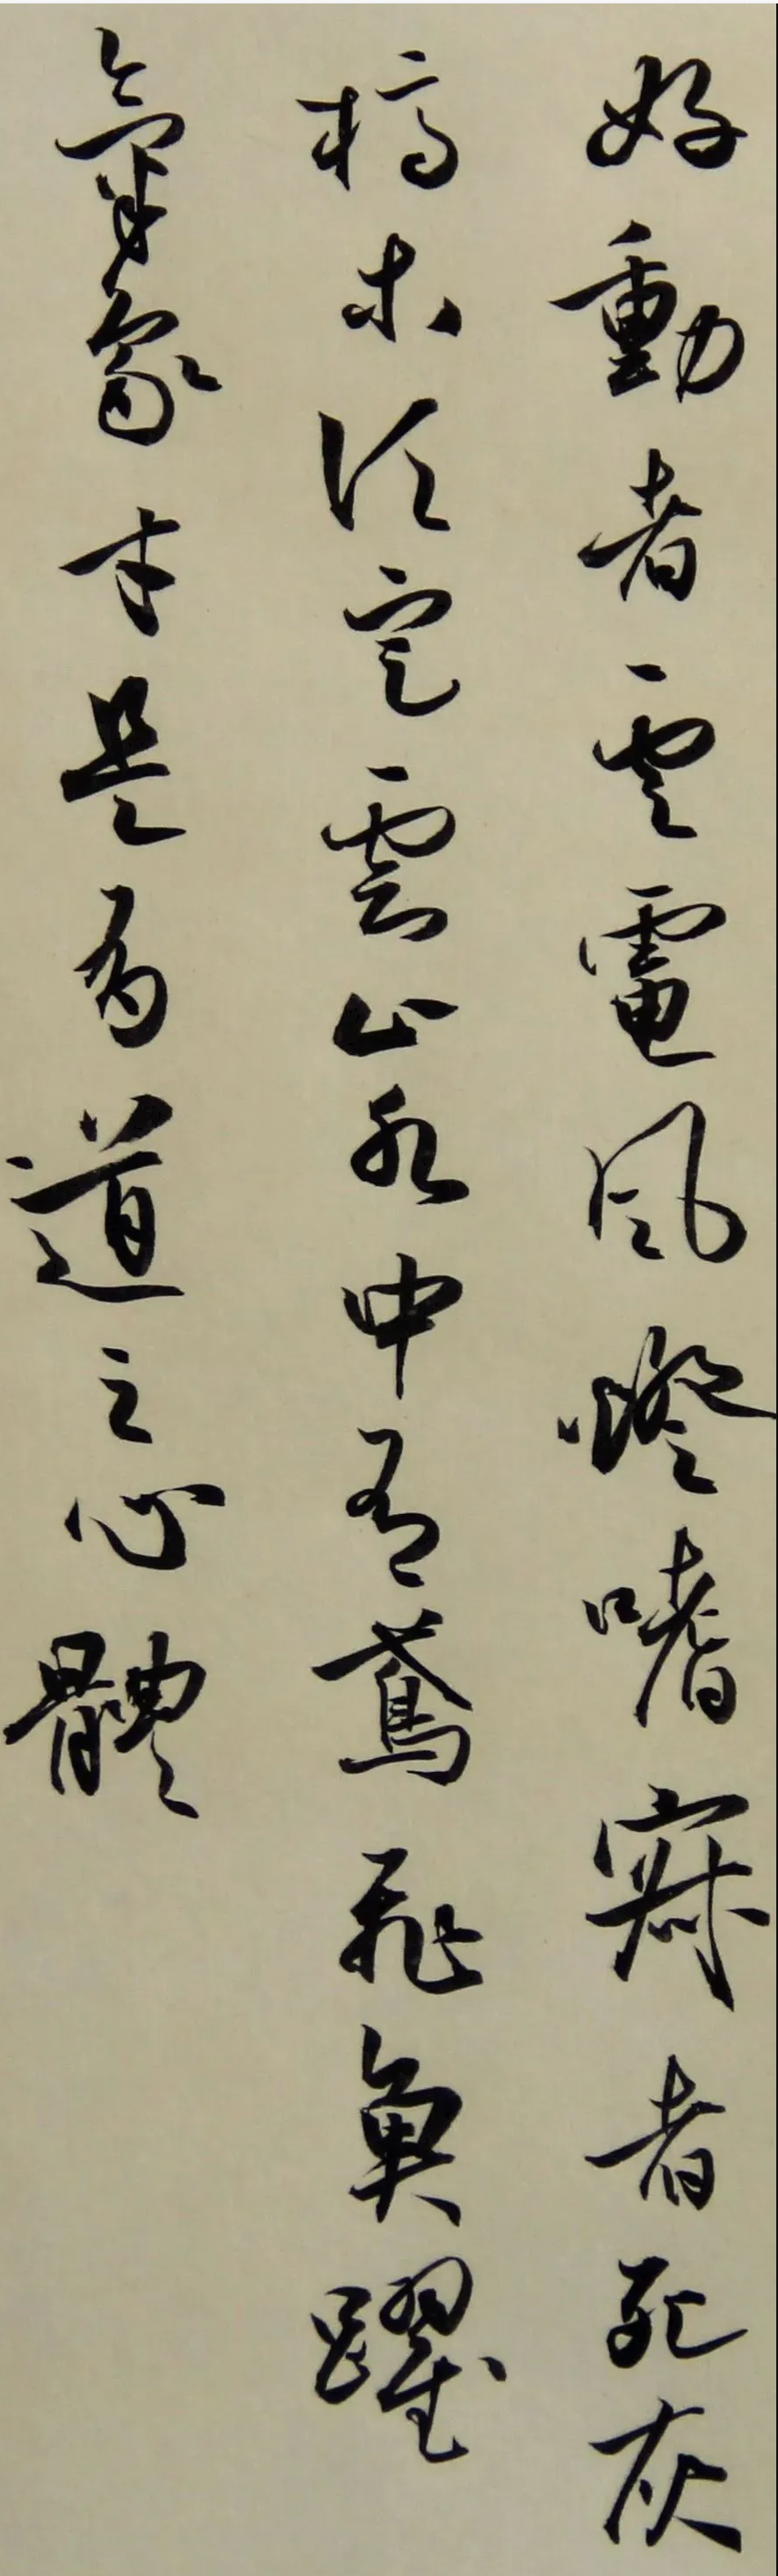 好動者雲電風燈嗜寂者死灰
槁木須定雲止水中有鳶飛魚躍
氣象才是有道之心體